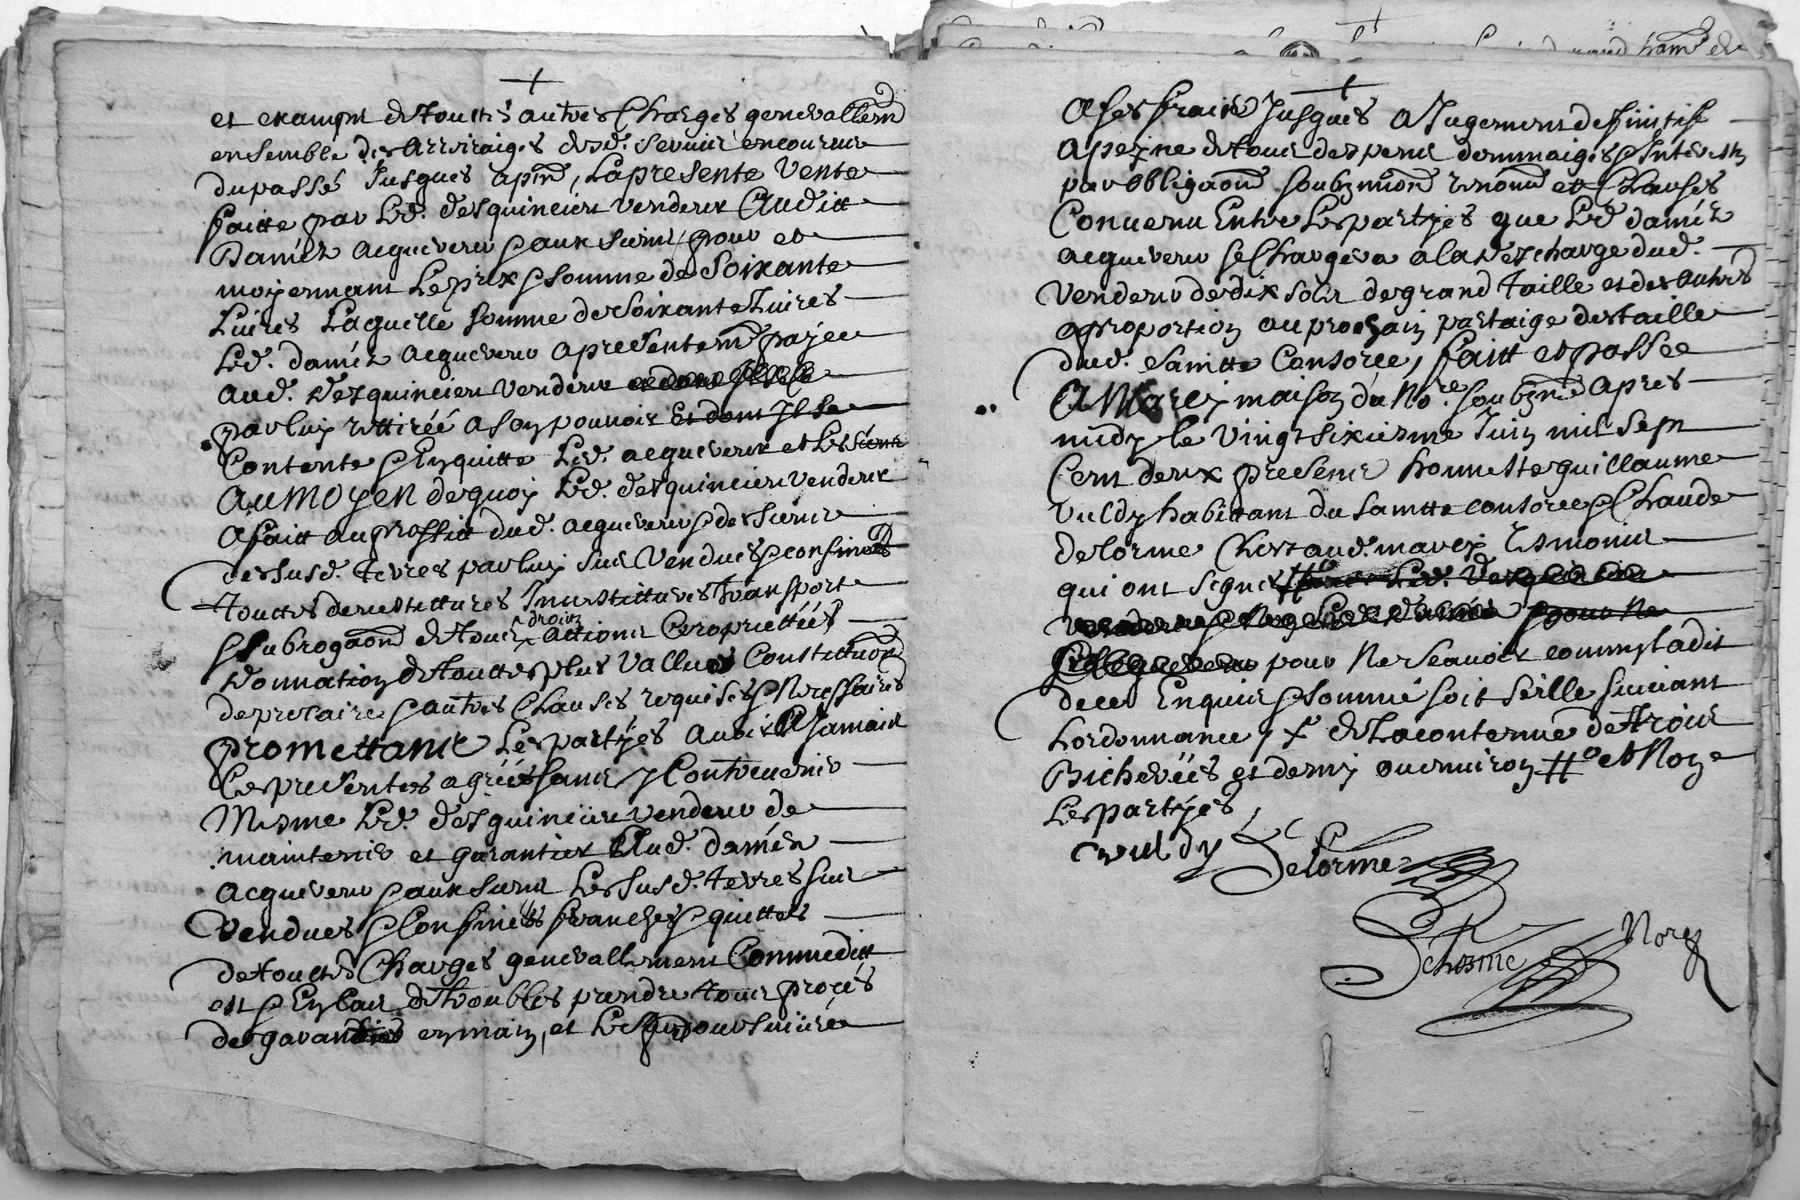 et exampt de touttes autres charges generallemt
ensemble des arreiraiges desd. servis encourus
du passé Jusques apnt, La presente vente
faitte par Led. desquincieu vendeur Auditt
Daméz acquereur & aux siens, pour et
moyennant Le prix & somme de Soixante
Livres Laquelle somme de Soixante Livres
Led. daméz acquereur a presentemt payee
Aud. desquincieu vendeur
par luy rettirée a son pouvoir Et dont Il se
Contente & En quitte Led. acquereur et Les siens
AU MOYEN de quoy Led. desquincieu vendeur
A faitt au proffitt dud. acquereur & des siens
des susd. terres par luy sus vendues & confinées
touttes devestittures Investittures transport
& subrogaōn de tous droits actions & proprietéés
Donnation de touttes plus vallues Constittuōn
de precaire & autres Clauses requises & Necessaires
promettant Les partyes Avoir A Jamais
Ces presentes agréés sans y Contrevenir
Mesme Led. desquincieu vendeur de
maintenir et garantir Aud. daméz
acquereur & aux siens Les susd. terres sus
vendues & Confinées franches & quittes
de touttes Charges generallement Comme ditt
est & En cas de troubles prendre tous procés
de garanties en main, et Les poursuivre
A ses frais Jusques a Jugement deffinitif
a peyne de tous despens dommaiges & Interestz
par obligaōn soubzmiōn renonn et Clauses
Convenu Entre Les partyes que Led daméz
acquereur se Chargera a la deschargé dud.
vendeur de dix solz de grand taille et des autres
a proportion au prochain partaige des taille
dud. Sainte Consorce, faitt et passée
A Marcy maison du Nore. soubzné apres
midy le vingt sixiesme Juin mil sept
Cent deux presens honneste guillaume
vuldy habittant du Saintte consorce & Claude
delorme Clerc aud. marcy tesmoins
qui ont signes
pour Ne scavoir comm'ont dit
de ce Enquis & sommé soit seelle suivant
Lordonnance, x de La contenue de trois
Bicherées et demy ou environ # et Non
Les partyes
vuldy Delorme
Delorme Nore